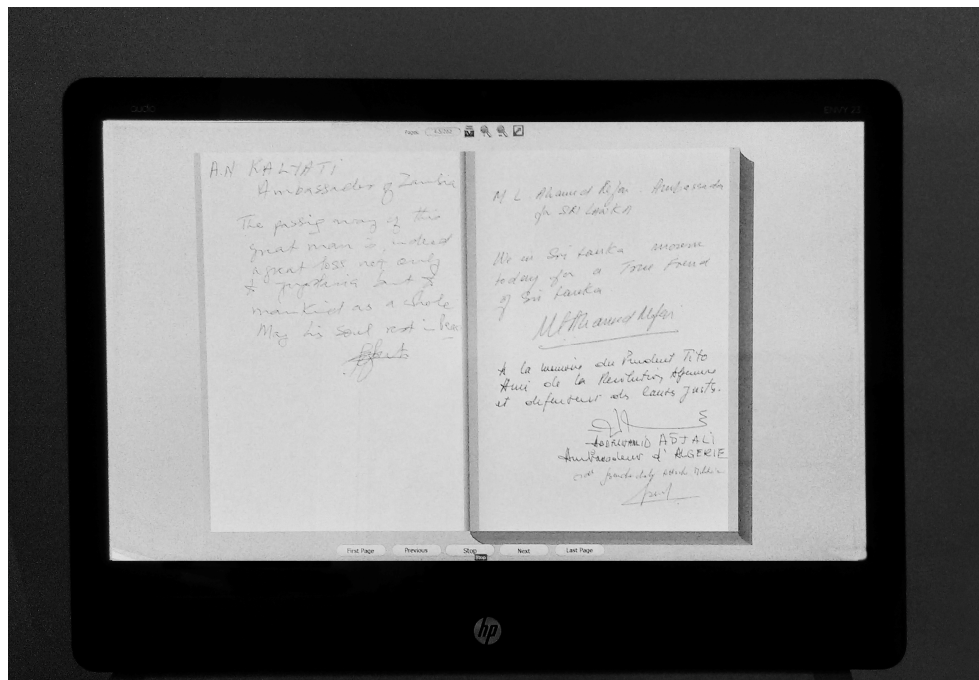 audio
ENVY 23
Pages
A.N KALYATI
Ambassador of Zambia
The passig away of this
great man is indeed
a great loss not only
to but to
mankind as a whole
May his soul rest in Peace
M L Ahamed Refai Ambassador
for SRI LANKA
We in Sri Lanka mourn
today for a True Friend
of Sri Lanka
A la memoire du President Tito
Ami de la Revolution Algerienne
et defenseur des causes justes.
ABDELHAMID ADJALI
Ambassadeur d'ALGERIE
First Page
Previous
Stop
Next
Last Page
Stop
hp